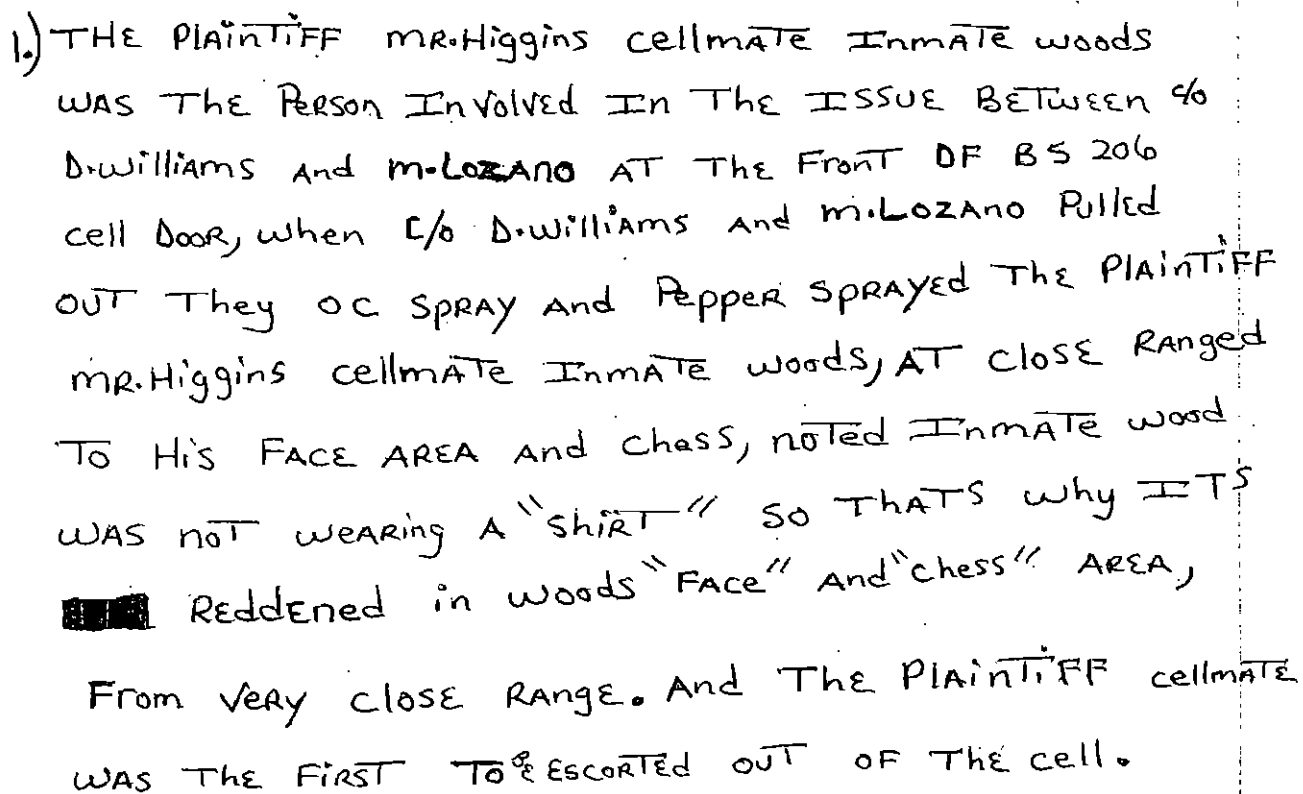 1.) THE PLAINTIFF MR.Higgins cellmATE InmATE woods
WAS THE PERSON InVOLVEd In THE ISSUE BETWEEN c/o
D.williAms And m.LOZANO AT THE FRONT OF B5 206
cell DOOR, when C/o D.williAms And m.LOZANO Pulled
OUT They OC SPRAY And PEPPER SPRAYED THE PLAINTIFF
MR.Higgins cellmATE InmATE woods, AT CLOSE RAnged
TO His FACE AREA And Chess, noTed InmATE wood
WAS noT weARing A "ShiRT" SO THATS why ITS
REddEned in woods "FACE" And "chess" AREA,
From VERY CLOSE RAngE. And THE PLAINTIFF cellmATE
WAS THE FIRST TO BE ESCORTEd OUT OF THE cell.